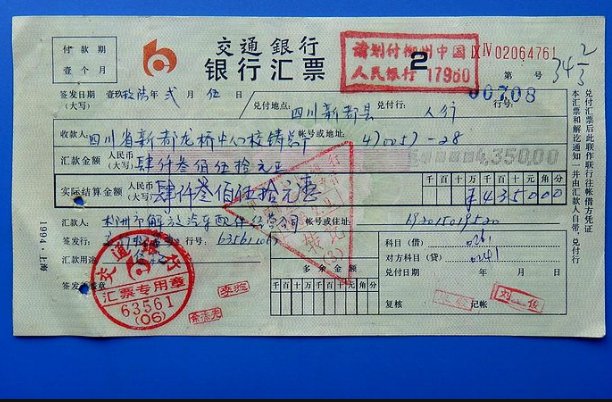 付款期
壹个月
交通銀行
银行汇票
2
请划付柳州中国
人民银行 17960
IX IV 02064761
第 号
34 2/3
签发日期 壹玖 年 贰 月 伍 日
(大写)
兑付地点: 四川新都县 兑付行: 人行 行号: 00708
收款人: 四川省新都龙桥中心校铸造厂 帐号或地址: 470057-28
汇款金额 人民币(大写) 肆仟叁佰伍拾元正 4,350.00
实际结算金额 人民币(大写) 肆仟叁佰伍拾元整
千 百 十 万 千 百 十 元 角 分
¥ 4 3 5 0 0 0
汇款人: 柳州市解放汽车配件经营部 帐号或住址:
签发行: 行号: 635611065
汇款用途
签发行盖章
多余金额
千 百 十 万 千 百 十 元 角 分
科目(借) 0261
对方科目(贷) 0241
兑付日期 年 月 日
复核 记帐
交通银行
汇票专用章
63561
(06)
1994·上海
本汇票和解讫通知一并由汇款人自带,兑付行
兑付汇票后此联作联行往帐借方凭证